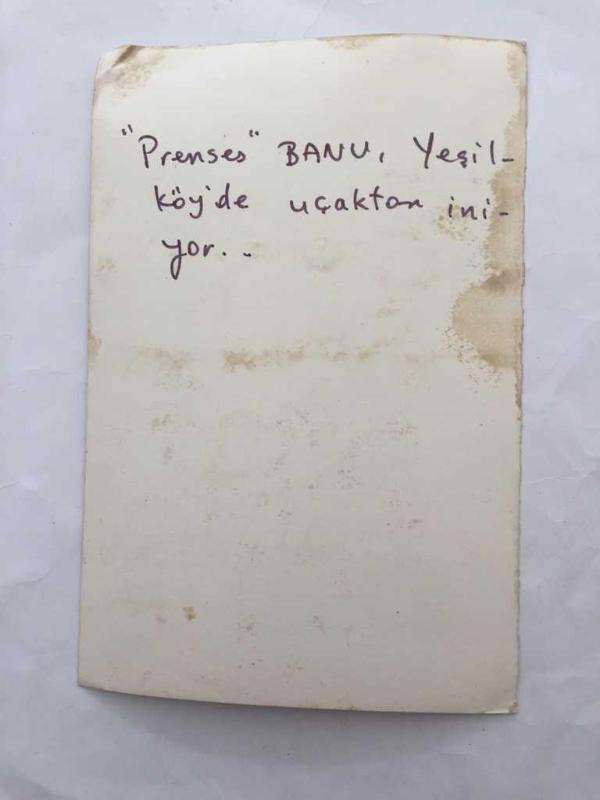 "Prenses" BANU, Yeşil-
köy'de uçaktan ini-
yor...